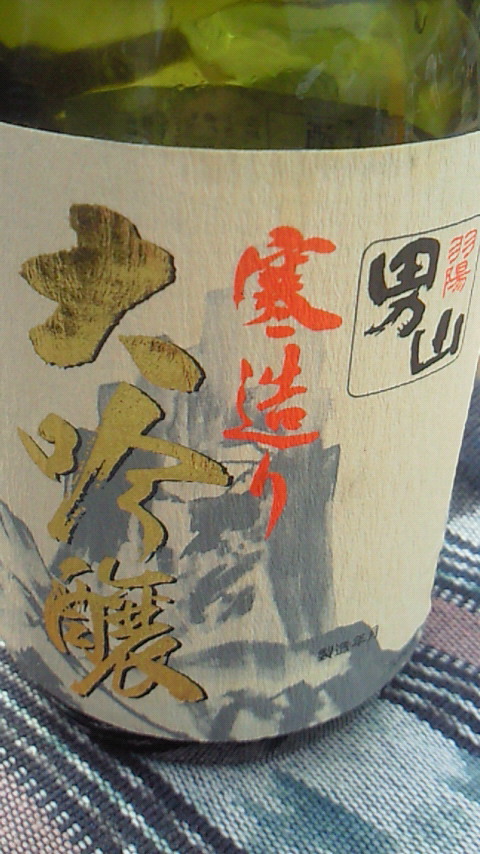 羽陽
男山
寒造り
大吟醸
製造年月